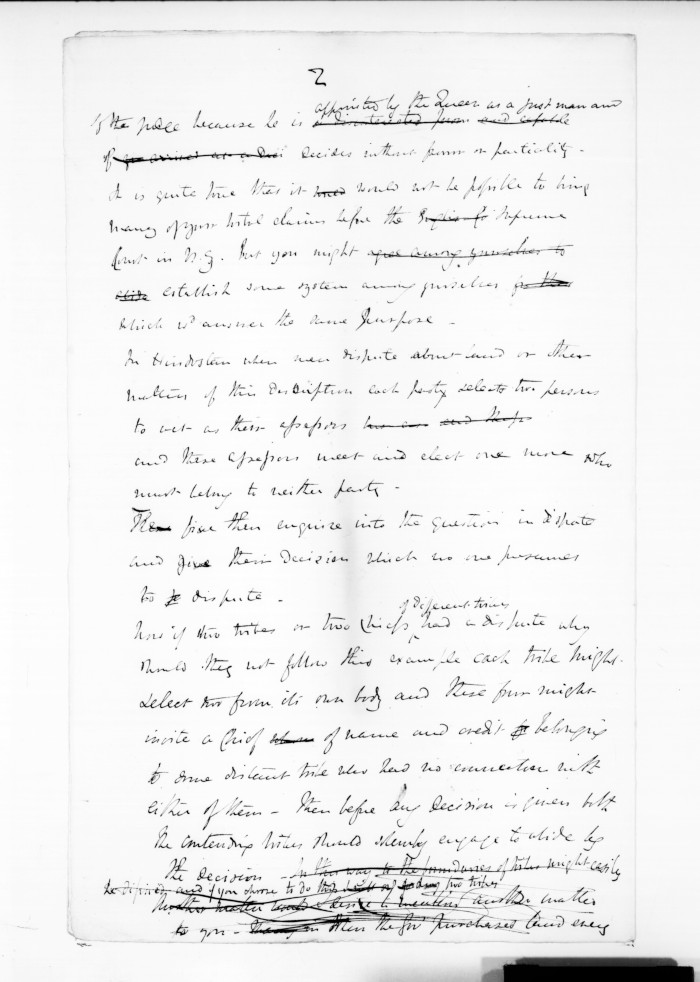 2
appointed by the Queen as a just man and
of the place because he is a disinterested person and capable
of decides without favor or partiality -
It is quite true that it would not be possible to bring
many of your tribal claims before the Supreme
Court in N.Z. But you might agree among yourselves to
establish some system among yourselves
which wd answer the same purpose -
In Hindustan when men dispute about land or other
matters of this description each party selects two persons
to act as their assessors
and these assessors meet and elect one more who
must belong to neither party -
The five then enquire into the question in dispute
and give their decision which no one presumes
to dispute -
of different tribes
Now if two tribes or two Chiefs had a dispute why
should they not follow this example each tribe might
select two from its own body and these four might
invite a Chief of name and credit belonging
to some distant tribe who had no connection with
either of them - Then before any decision is given both
the contending tribes should solemnly engage to abide by
the decision - In this way the boundaries of tribes might easily
be defined and if you choose to do this
another matter
to you - When the Govt purchased land every